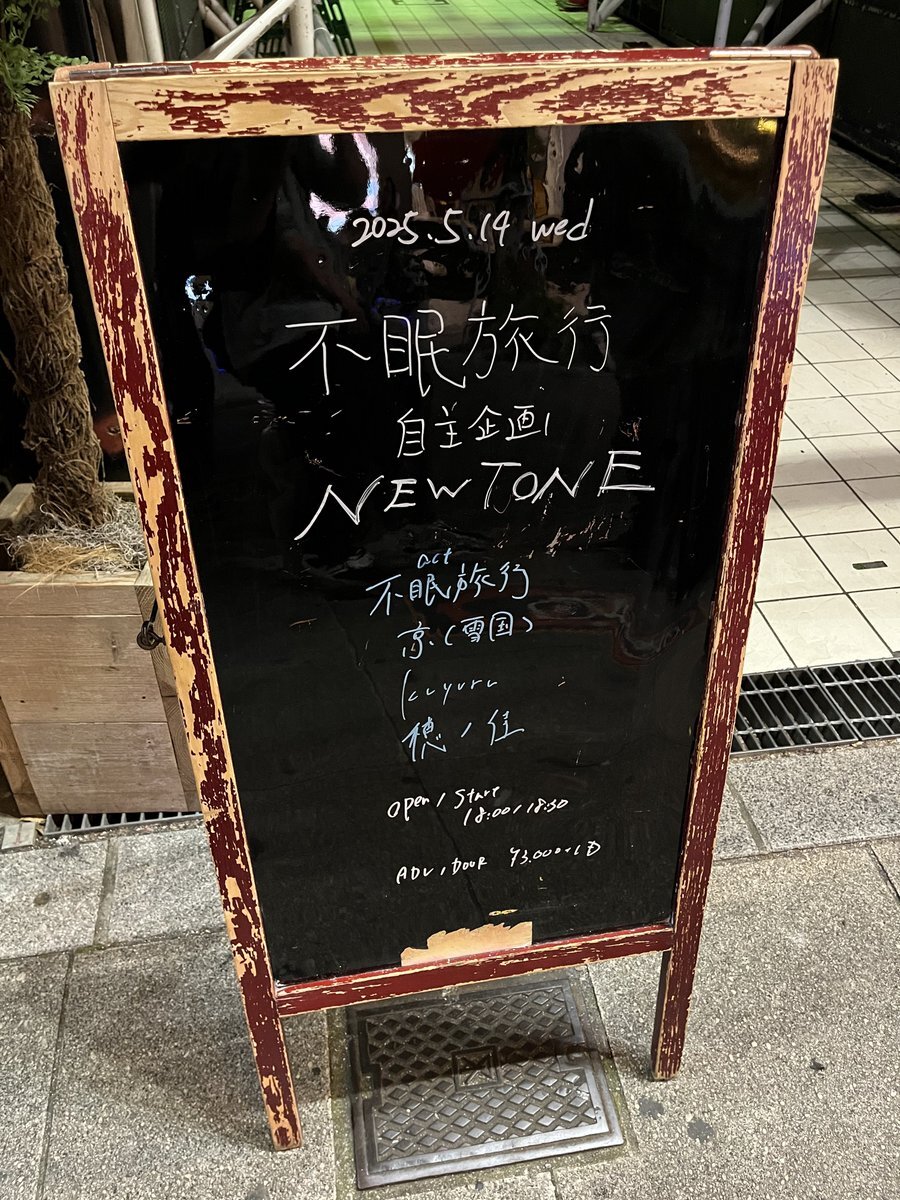 2025.5.14 wed
不眠旅行
自主企画
NEWTONE
act
不眠旅行
京(雪国)
kuyuru
穂ノ佳
open / start
18:00 / 18:30
ADV / DOOR ¥3.000+1D